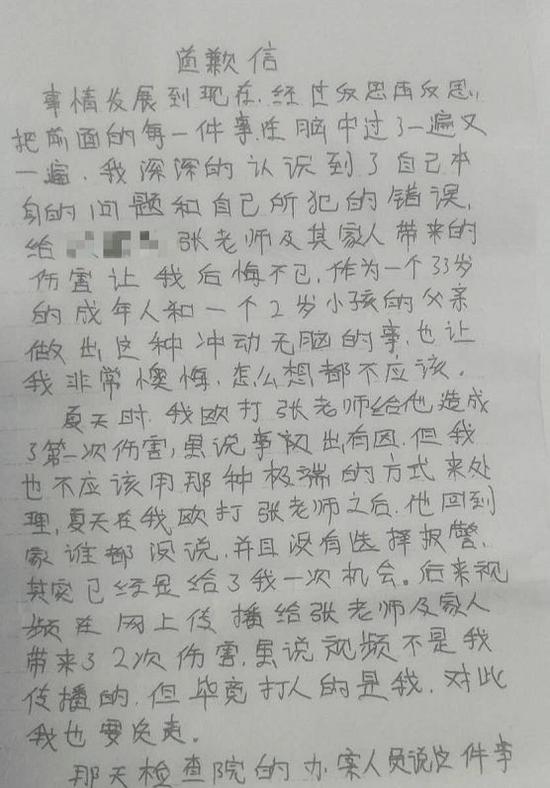 道歉信
事情发展到现在,经过反思再反思,
把前面的每一件事在脑中过了一遍又
一遍,我深深的认识到了自己本
身的问题和自己所犯的错误,
给 张老师及其家人带来的
伤害让我后悔不已,作为一个33岁
的成年人和一个2岁小孩的父亲
做出这种冲动无脑的事,也让
我非常懊悔,怎么想都不应该。
夏天时,我欧打张老师给他造成
了第一次伤害,虽说事初出有因,但我
也不应该用那种极端的方式来处
理,夏天在我欧打张老师之后,他回到
家谁都没说,并且没有选择报警,
其实已经是给了我一次机会。后来视
频在网上传播给张老师及家人
带来了2次伤害,虽说视频不是我
传播的,但毕竟打人的是我,对此
我也要负责。
那天检查院的办案人员说这件事